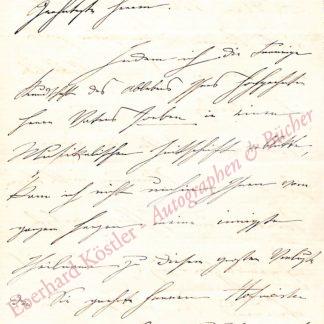 Geehrteste Herrn.
Indem ich die traurige
Kundschaft des Ablebens Ihres hochgeachteten
Herrn Vaters soeben in einer
Musikalischen Zeitschrift
kann ich nicht umhin Ihnen vom
ganzen Herzen meine innigste
Theilnahme zu diesem großen Verluste
Sie geehrte Herren Hofmeister
Eberhard Köstler - Autographen & Bücher